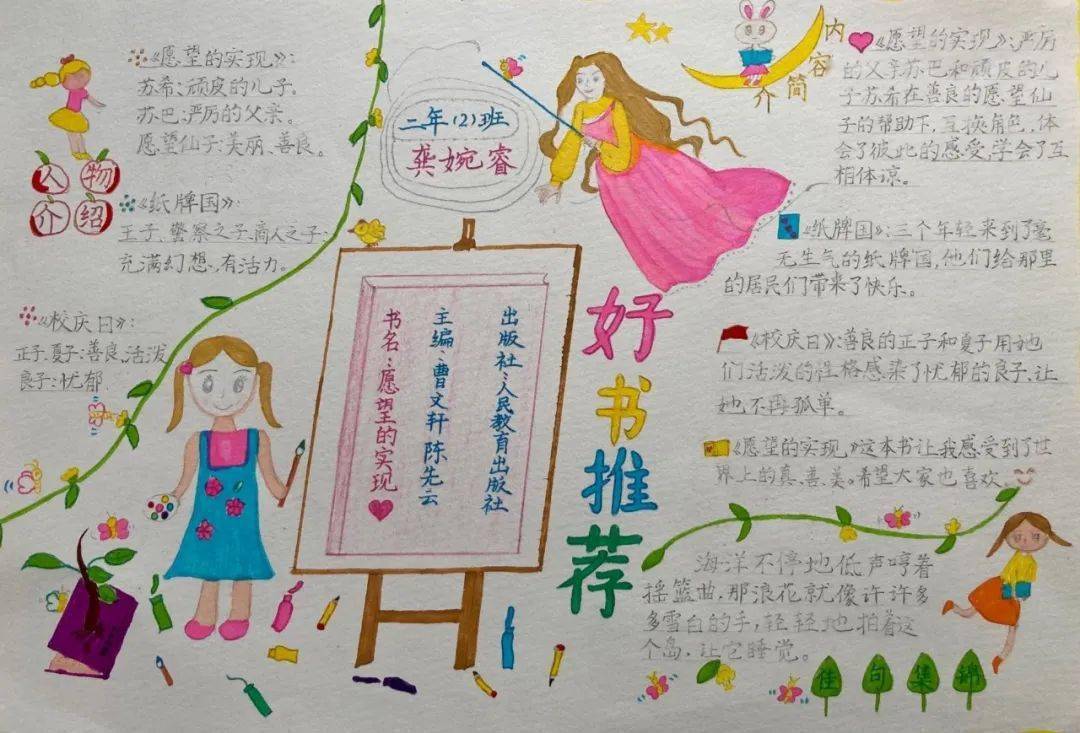 《愿望的实现》：
苏希：顽皮的儿子。
苏巴：严厉的父亲。
愿望仙子：美丽、善良。
人物
介绍
《纸牌国》：
王子、警察之子、商人之子：
充满幻想、有活力。
《校庆日》：
正子、夏子：善良、活泼
良子：忧郁
二年（2）班
龚婉睿
书名：愿望的实现
主编：曹文轩 陈先云
出版社：人民教育出版社
好书推荐
内容简介
《愿望的实现》：严厉
的父亲苏巴和顽皮的儿
子苏希在善良的愿望仙
子的帮助下，互换角色，体
会了彼此的感受，学会了互
相体谅。
《纸牌国》：三个年轻来到了毫
无生气的纸牌国，他们给那里
的居民们带来了快乐。
《校庆日》：善良的正子和夏子用她
们活泼的性格感染了忧郁的良子，让
她不再孤单。
《愿望的实现》这本书让我感受到了世
界上的真、善、美。希望大家也喜欢。
海洋不停地低声哼着
摇篮曲，那浪花就像许许多
多雪白的手，轻轻地拍着这
个岛，让它睡觉。
佳句集锦